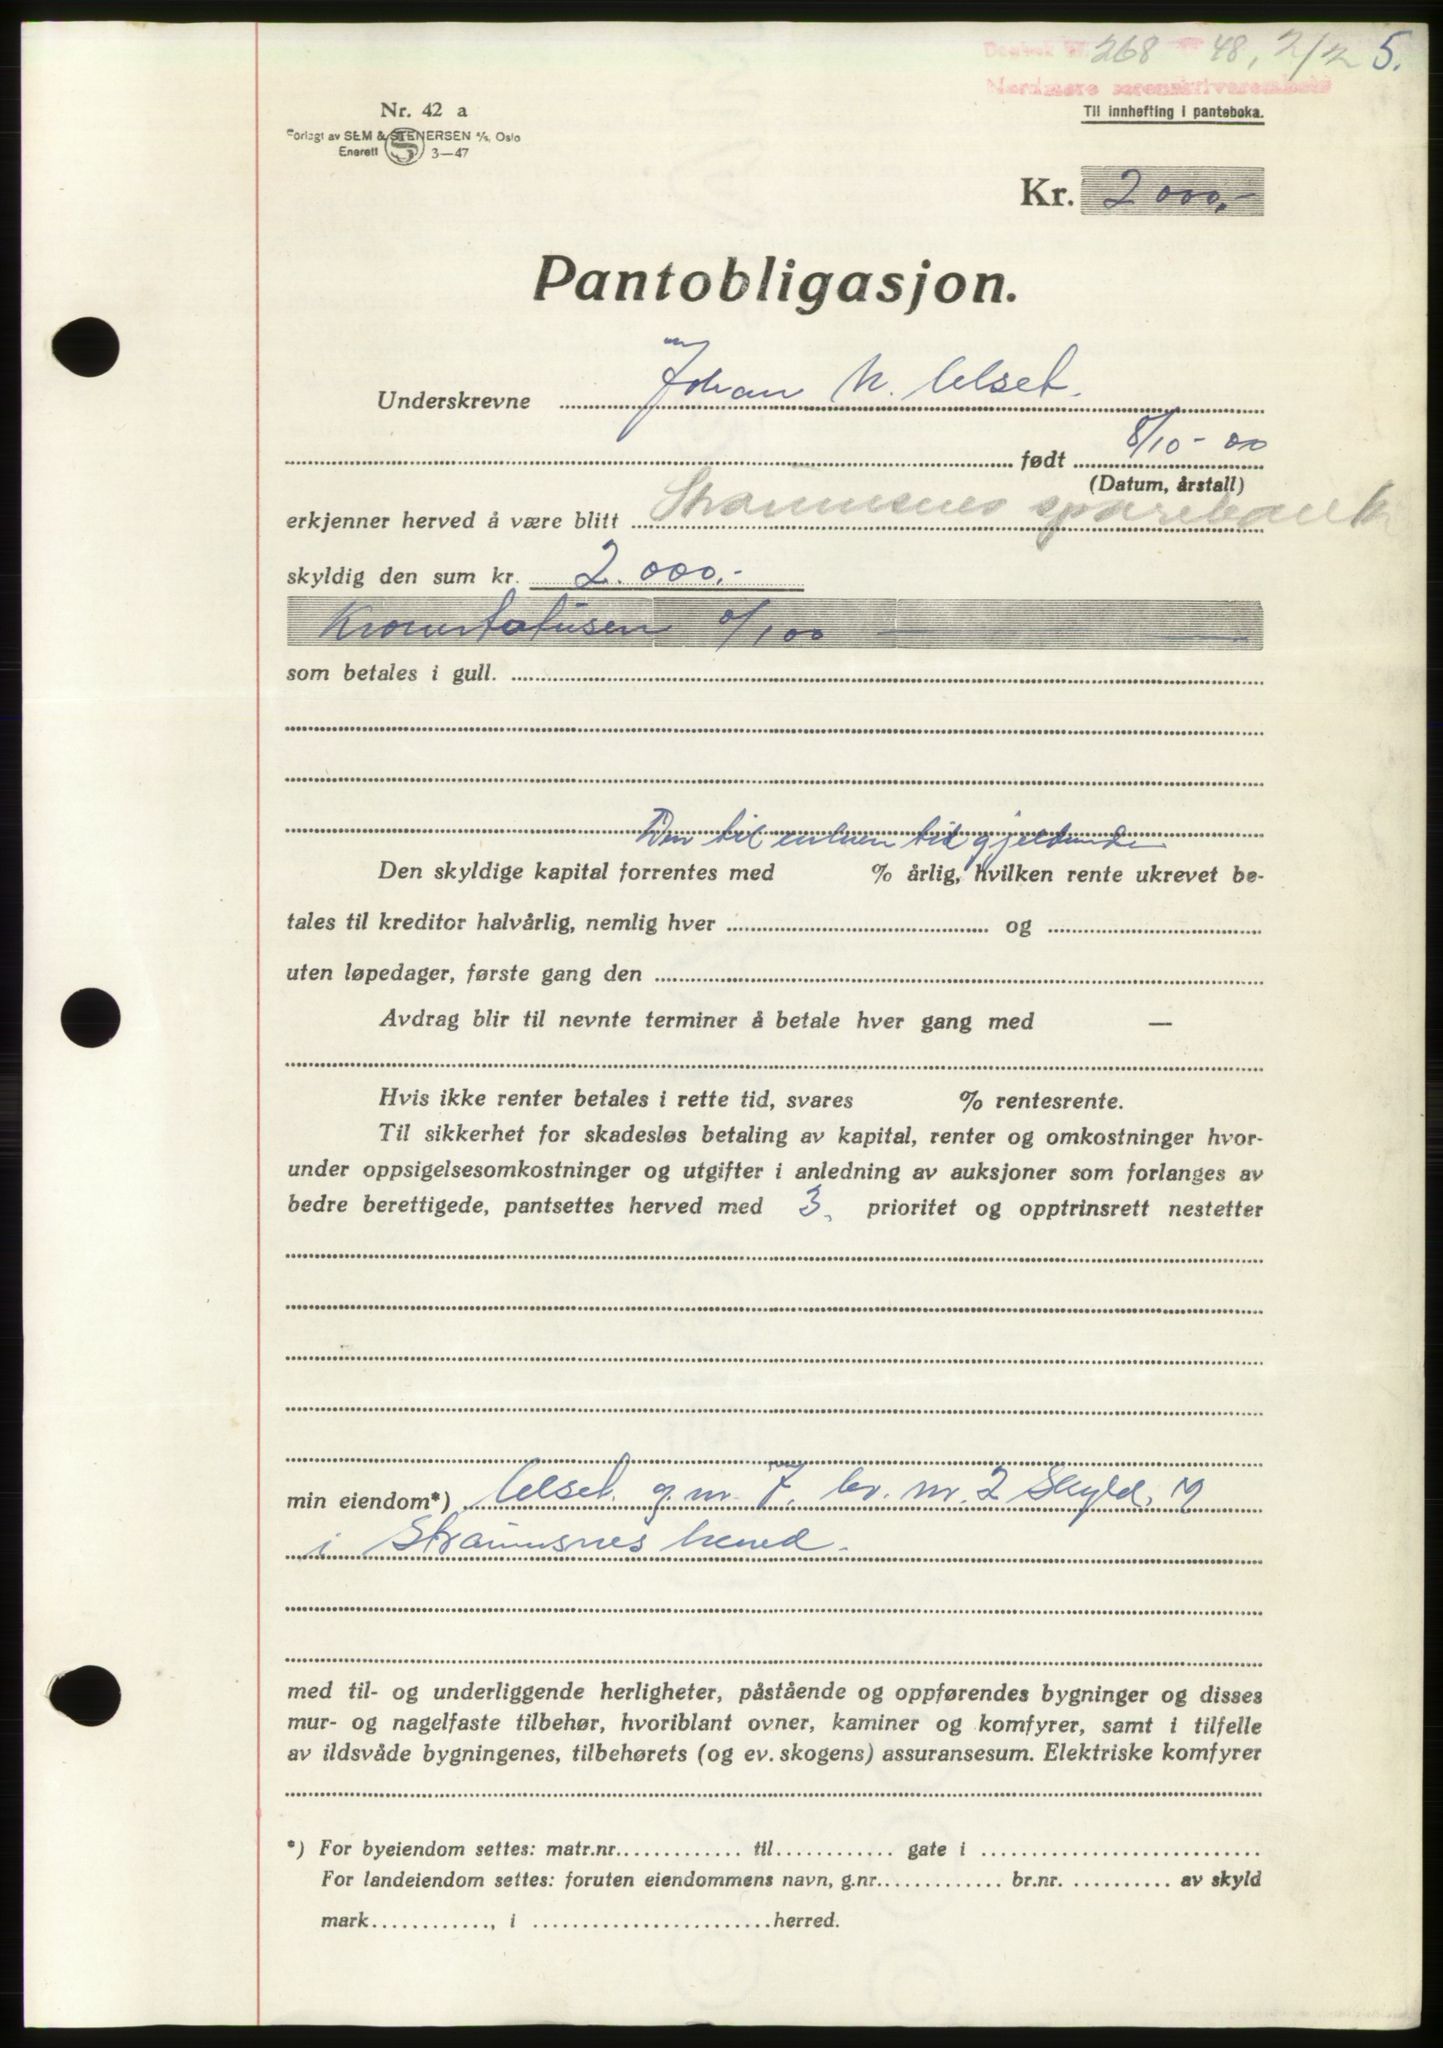 Dagbok nr. 268 48, 2/2 5.
Nordmøre sorenskriverembete
Nr. 42 a
Til innhefting i panteboka.
Forlagt av SEM & STENERSEN A/S, Oslo
Enerett S 3—47
Kr. 2 000,-
Pantobligasjon.
Underskrevne Johan N. Ulset.
født 8/10 - 00
(Datum, årstall)
erkjenner herved å være blitt Straumsnes sparebank
skyldig den sum kr. 2.000,-
Kronertotusen 0/100 —
som betales i gull.
Den til enhver tid gjeldende
Den skyldige kapital forrentes med % årlig, hvilken rente ukrevet be-
tales til kreditor halvårlig, nemlig hver og
uten løpedager, første gang den
Avdrag blir til nevnte terminer å betale hver gang med —
Hvis ikke renter betales i rette tid, svares % rentesrente.
Til sikkerhet for skadesløs betaling av kapital, renter og omkostninger hvor-
under oppsigelsesomkostninger og utgifter i anledning av auksjoner som forlanges av
bedre berettigede, pantsettes herved med 3. prioritet og opptrinsrett nestetter
min eiendom*) Ulset. g. nr. 7. br. nr. 2 Skyld,
i Straumsnes herred.
med til- og underliggende herligheter, påstående og oppførendes bygninger og disses
mur- og nagelfaste tilbehør, hvoriblant ovner, kaminer og komfyrer, samt i tilfelle
av ildsvåde bygningenes, tilbehørets (og ev. skogens) assuransesum. Elektriske komfyrer
*) For byeiendom settes: matr.nr. til gate i
For landeiendom settes: foruten eiendommens navn, g.nr. br.nr. av skyld
mark , i herred.